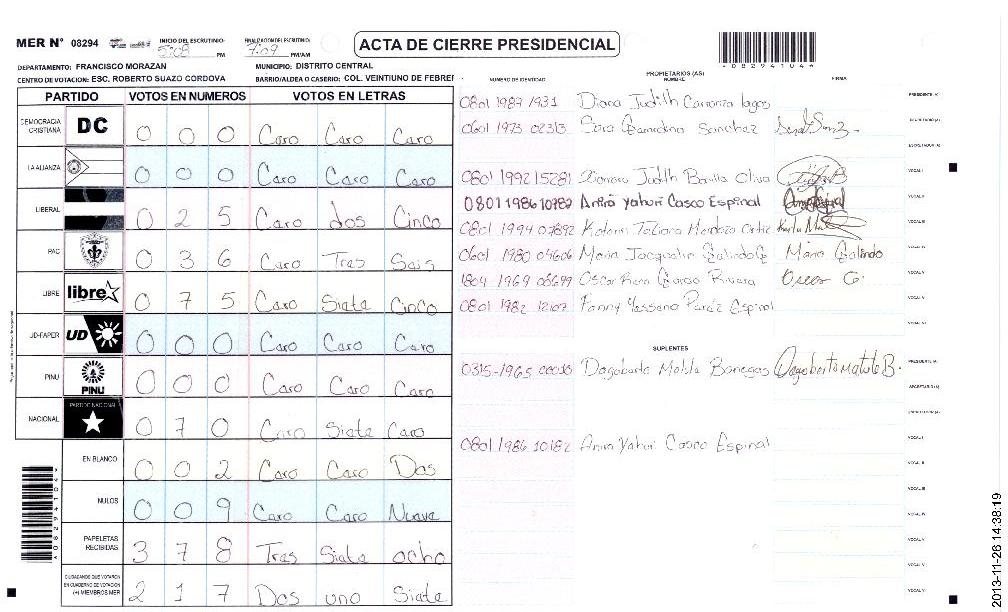 MER Nº 08294 INICIO DEL ESCRUTINIO: 5:08 PM FINALIZACION DEL ESCRUTINIO: 7:09 PM/AM
ACTA DE CIERRE PRESIDENCIAL
DEPARTAMENTO: FRANCISCO MORAZAN MUNICIPIO: DISTRITO CENTRAL
CENTRO DE VOTACION: ESC. ROBERTO SUAZO CORDOVA BARRIO/ALDEA O CASERIO: COL. VEINTIUNO DE FEBRER
PARTIDO VOTOS EN NUMEROS VOTOS EN LETRAS
DEMOCRACIA CRISTIANA DC 0 0 0 Caro Caro Caro
LA ALIANZA 0 0 0 Caro Caro Caro
LIBERAL 0 2 5 Caro dos Cinco
PAC 0 3 6 Caro Tras Sais
LIBRE libre 0 7 5 Caro Siata Cinco
UD-FAPER UD 0 0 0 Caro Caro Caro
PINU PINU 0 0 0 Caro Caro Caro
NACIONAL PARTIDO NACIONAL 0 7 0 Caro Siata Caro
EN BLANCO 0 0 2 Caro Caro Dos
NULOS 0 0 9 Caro Caro Nuava
PAPELETAS RECIBIDAS 3 7 8 Tras Siata ocho
CIUDADANOS QUE VOTARON EN CUADERNO DE VOTACION (+) MIEMBROS MER 2 1 7 Dos uno Siata
*082941044*
PROPIETARIOS (AS)
NUMERO DE IDENTIDAD NOMBRE FIRMA
0801 1987 1931 Diana Judith Carranza lagos PRESIDENTE (A)
0601 1973 02313 Sara Sanchez SECRETARIO (A)
ESCRUTADOR (A)
0801 1992 15281 Judith Bonilla Oliva VOCAL I
0801 1986 10782 Anira Yahuri Casco Espinal VOCAL II
0801 1994 07892 Tatiana Mendoza Ortiz VOCAL III
0601 1980 04606 Maria Jacqualin Galindo G Maria Galindo VOCAL IV
1804 1969 08699 Oscar Garcia Rivera Oscar G. VOCAL V
0801 1982 12107 Fanny Yassano Paráz Espinal VOCAL VI
SUPLENTES
0315-1965 00030 Dagoberto Matute Banegas Dagoberto Matute B. PRESIDENTE (A)
SECRETARIO (A)
ESCRUTADOR (A)
0801 1986 10182 Anira Yahuri Casco Espinal VOCAL I
VOCAL II
VOCAL III
VOCAL IV
VOCAL V
VOCAL VI
*082941044*
2013-11-26 14:38:19